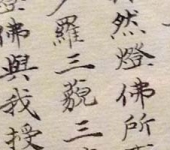 然燈佛所
羅三藐三
佛與我授